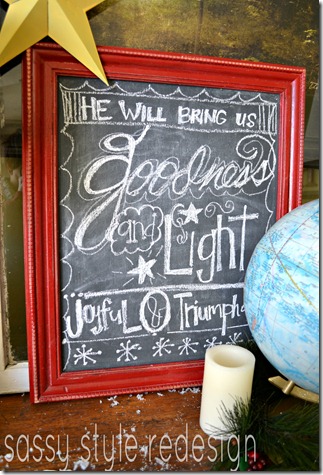 HE WILL BRING US
goodness
and
Light
JoyfuL & Triumpha
sassy style redesign